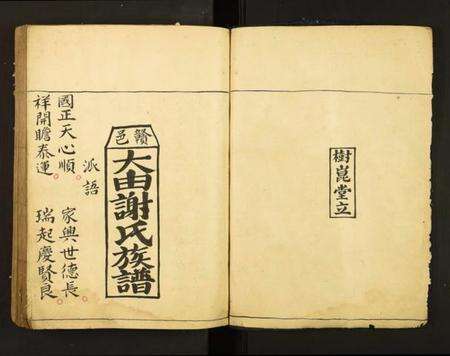 樹崑堂立
贛邑
大由謝氏族譜
派語
國正天心順 家興世德長
祥開瞻泰運 瑞起慶賢良